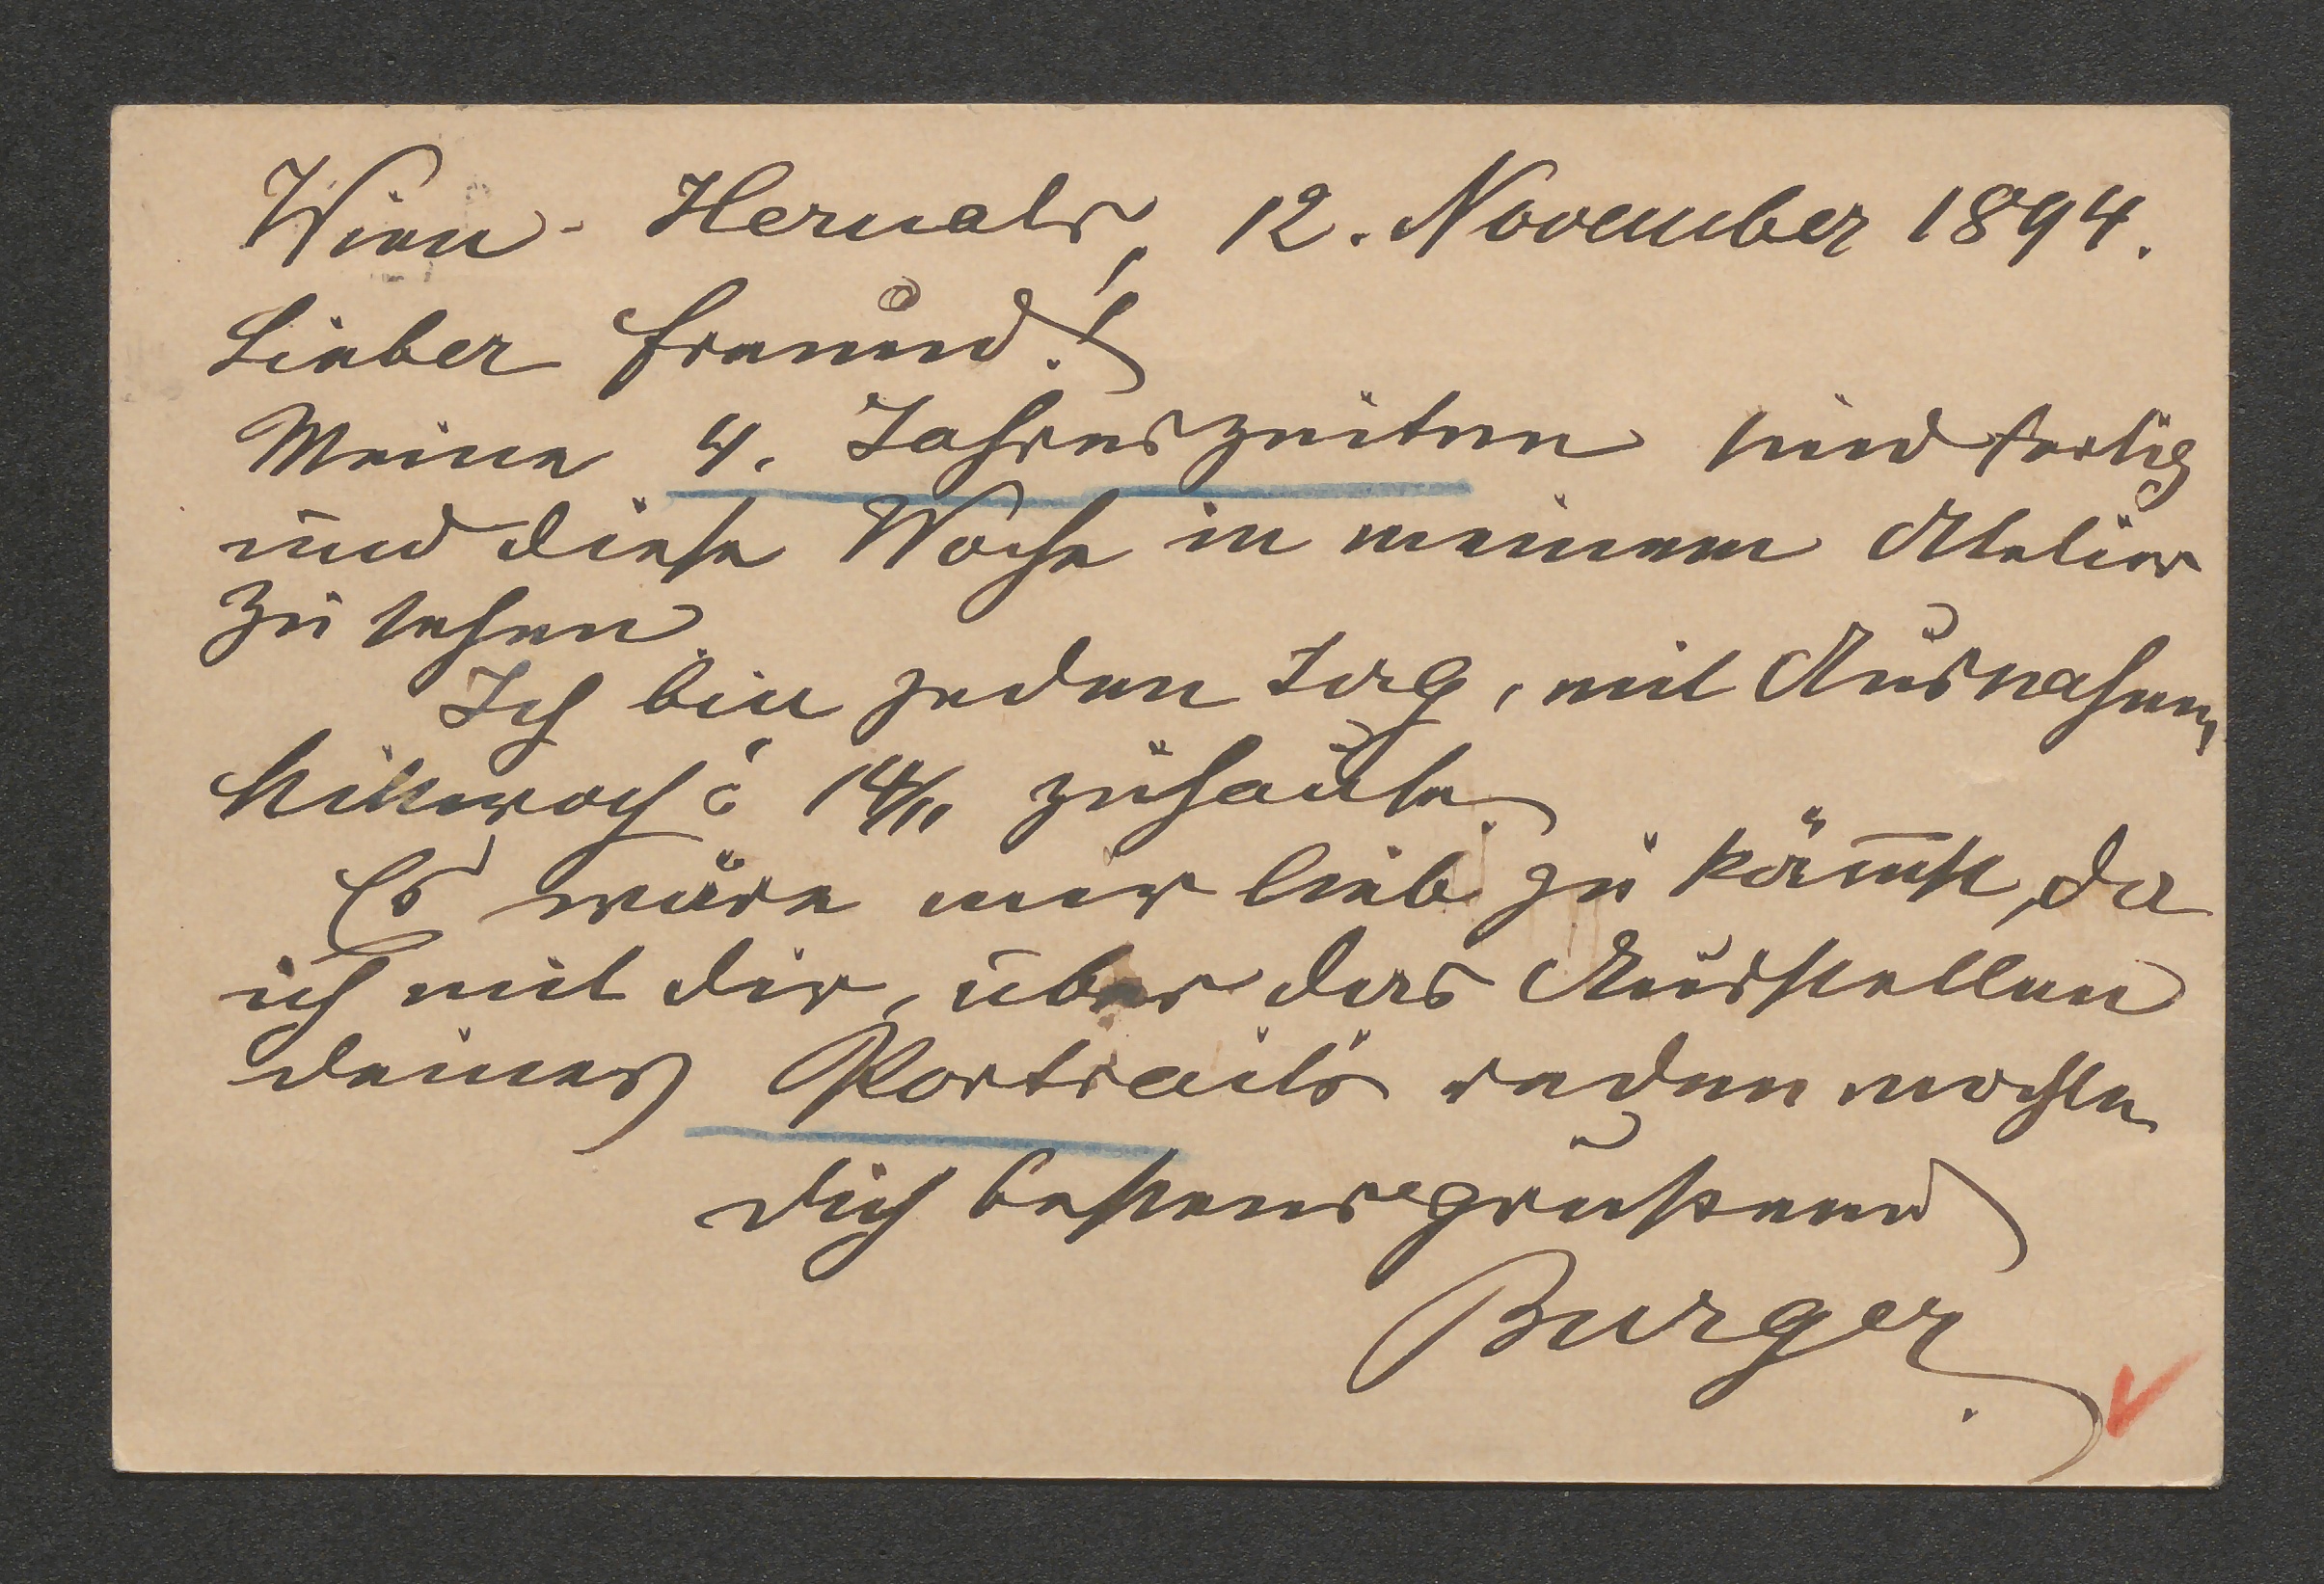 Wien - Hernals, 12. November 1894.
Lieber Freund!
Meine 4. Jahreszeiten sind fertig
und diese Woche in meinem Atelier
zu sehen.
Ich bin jeden Tag, mit Ausnahme
Mittwoch 14/11 zuhause.
Es wäre mir lieb zu kom̄st, da
ich mit dir, über das Ausstellen
deines Portrait's reden mochte
dich bestens grüßend
Burger.